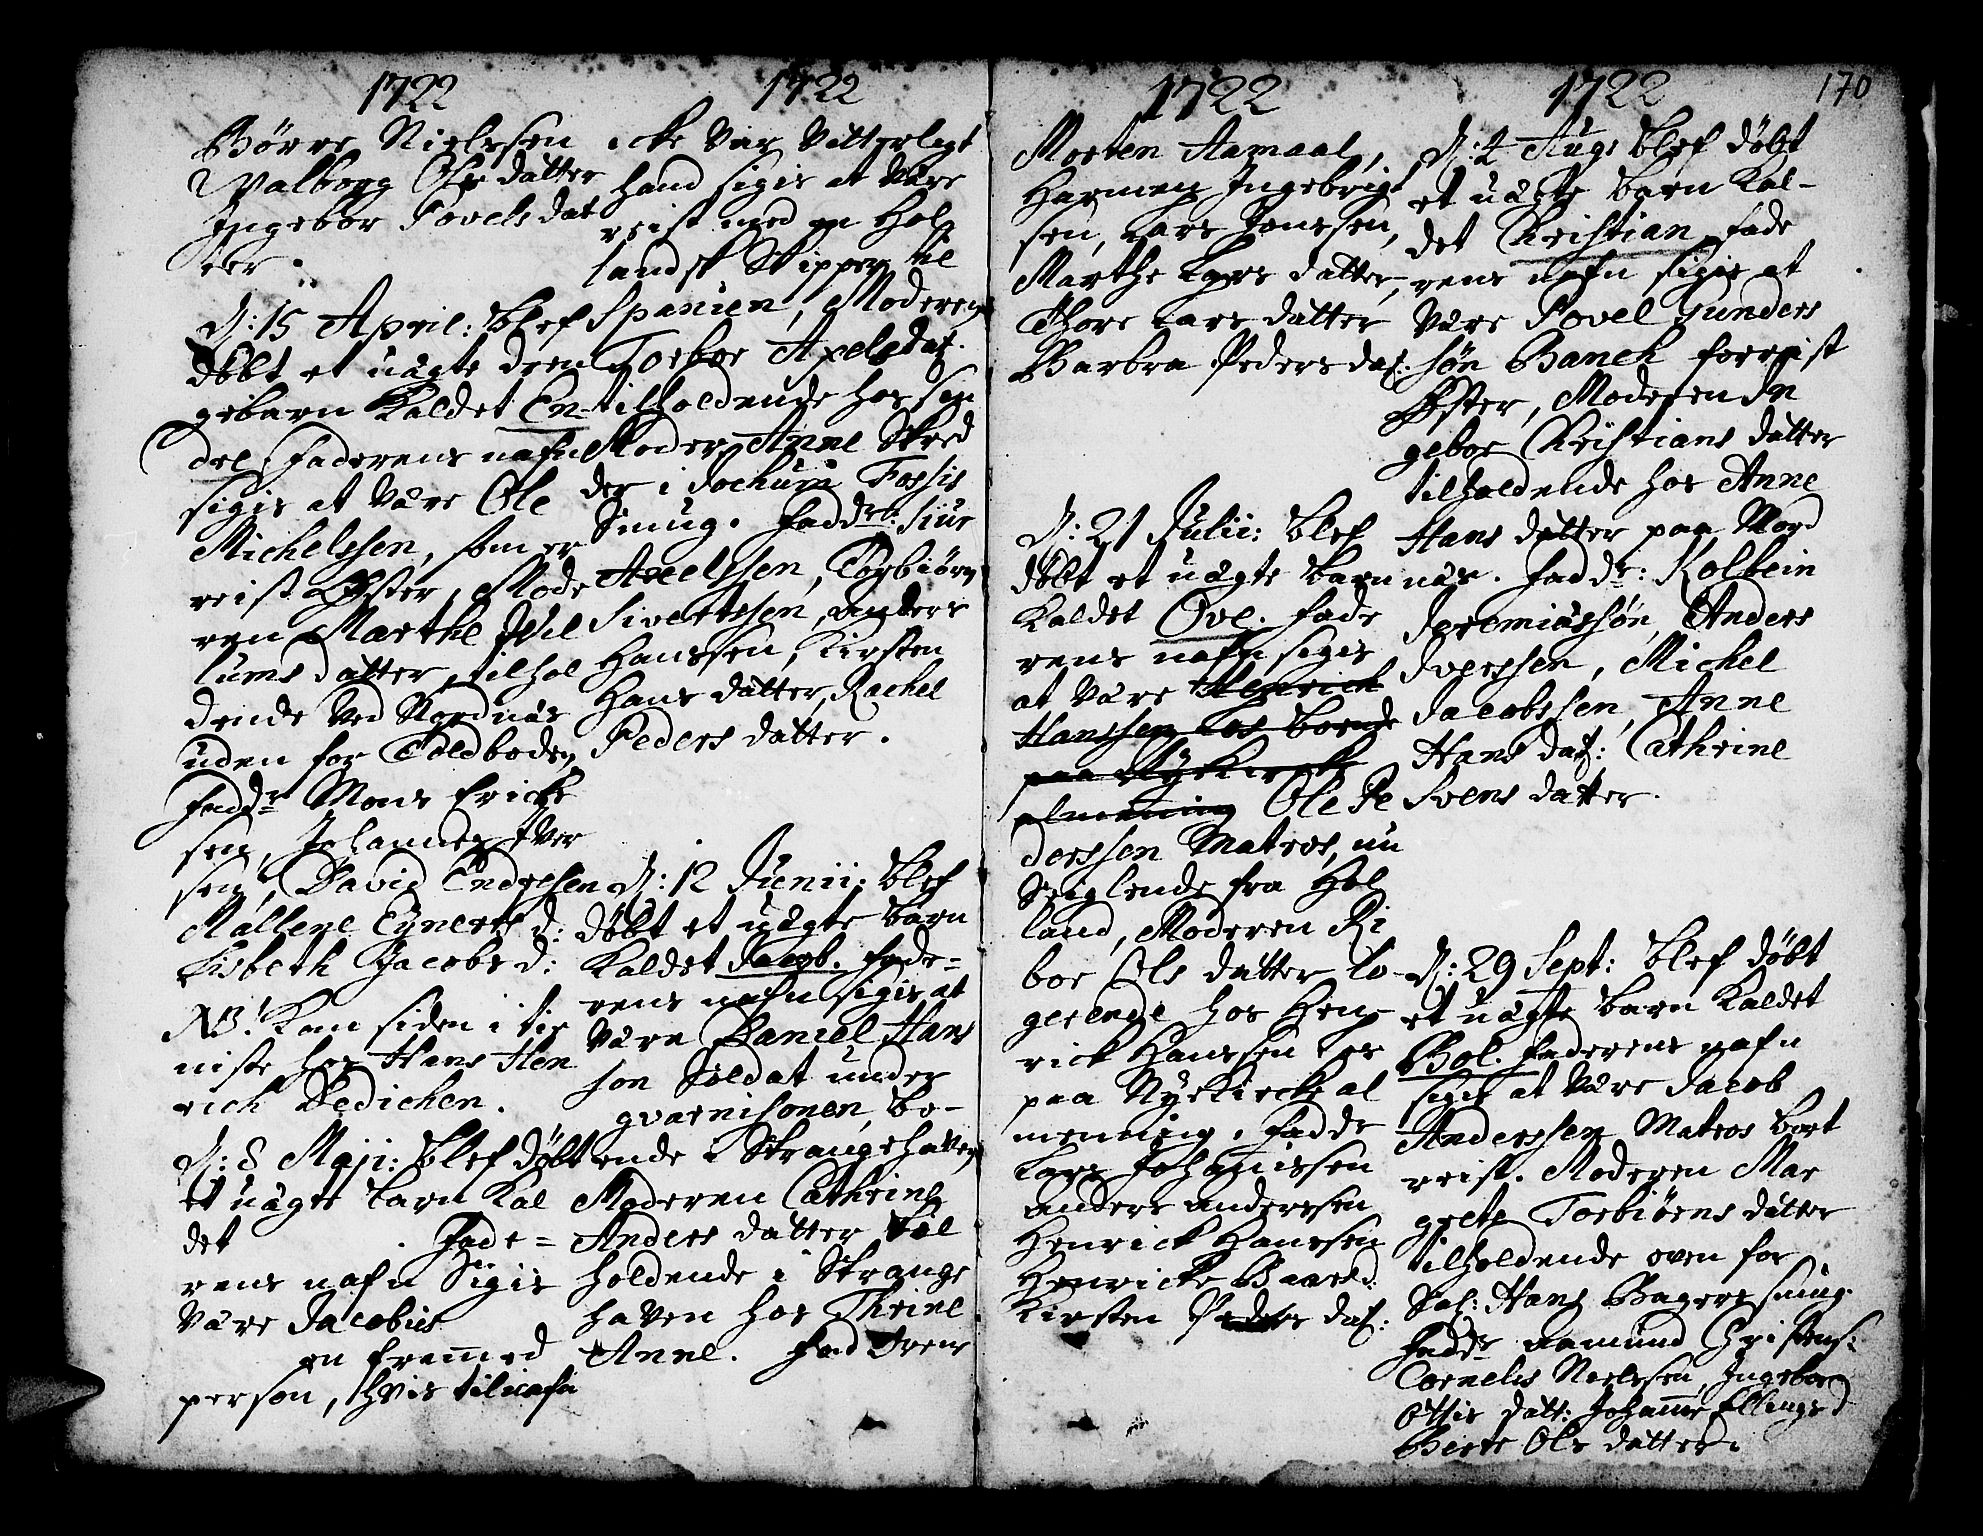 1722
Børre Nielssen
Walborg Ols datter
Ingebor Povels dat
ter.
D: 15 April: blef
døbt et uägte dren
gebarn kaldet En-
drel faderens nafn
sigis at være Ole
Michelssen, som er
reist Øster, Mode
ren Marthe Wil
lums datter, tilhol
dende ved Nordnæs
uden for Toldboden
Fadd: Mons Erick
sen, Johannes Iver
sen, David Endresen
Mallene Eyners d:
Lisbeth Jacobs d:
NB. Kom siden i tie
niste hos Hans Hen
rich Dedichen.
D: 8 Maji: blef døbt
et uägte barn kal
det . fade=
rens nafn sigis
være Jacobus
en fremmed
person, hvis tilnafn
1722
icke var vitterligt
hand sigis at være
reist med en Hol
landsk Skipper til
Spanien, Moderen
Torbor Apelsdat.
tilholdende hos sin
Moder Anne Skred
der i Jochum Fossis
Smug. Fadd: Siur
Axelssen, Torbiørn
Sivertssen, Anders
Hanssen, Kirsten
Hans datter, Rachel
Peders datter.
D: 12 Junii: blef
døbt et uägte barn
kaldet Jacob. fade=
rens nafn sigis at
være Daniel Hans
søn Soldat under
gvarnisonen, bo-
ende i Strangehaven
Moderen Cathrine
Anders datter til
holdende i Strange
haven hos Thrine
Anne. Fadderne
1722
Morten Aamaal,
Harmen Ingebrigt
sen, Lars Jonssen,
Marthe Lars datter,
Thore Lars datter
Barbra Peders dat:
D: 21 Julii: blef
døbt et uägte barn
kaldet Ove. fade
rens nafn sigis
at være Henrich
Hanssen Los boende
paa Nykircke
almening Ole Pe
derssen Matros, nu
Seiglende fra Hol
land, Moderen Ri
bor Ols datter lo-
gerende hos Hen
rick Hanssen Los
paa Nyekircke al
menning. Fadd:
Lars Johanssen
Anders Anderssen
Henrick Hanssen
Henricke Baars d.
Kirsten Peders dat:
1722
170
D: 2 Aug: blef døbt
et uägte barn kal-
det Christian. fade
rens nafn sigis at
være Povel Gunders
søn Banck forreist
Øster, Moderen In
gebor Christians datter
tilholdende hos Anne
Hans datter paa Nord
næs. Fadd: Kolbein
Jeremiassøn, Anders
Iverssen, Michel
Jacobssen, Anne
Hans dat: Cathrine
Svens datter.
D: 29 Sept: blef døbt
et uägte barn kaldet
Bol. Faderens nafn
sigis at være Jacob
Anderssen Matros bort
reist. Moderen Mar
grete Torbiørns datter
tilholdende oven for
Sal: Hans Bagers smug.
Fadd: Aamund Christens:
Cornelis Nielssen, Ingebor
Ottis datt: Johanne Ellings d
Birte Ols datter.